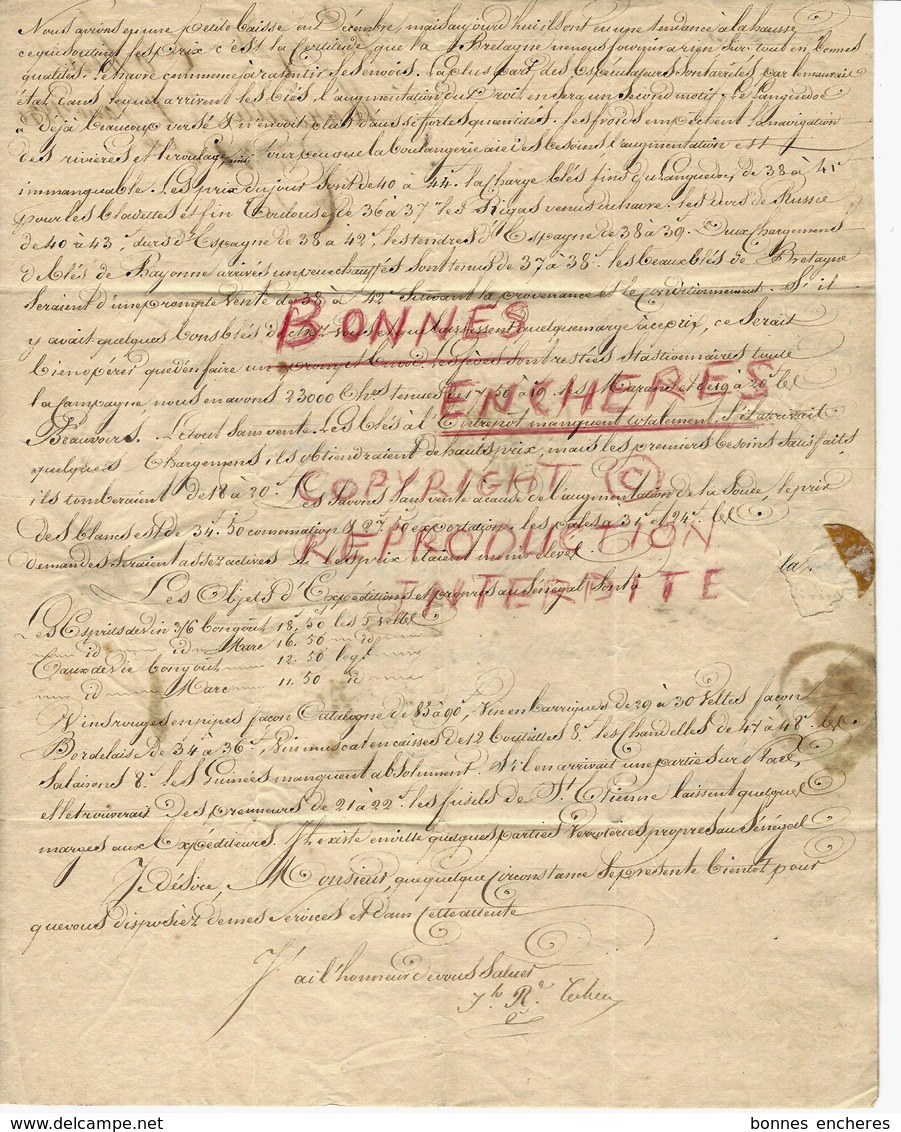 Nous avions eu une petite baisse en Décembre, mais aujourd'hui ils ont eu une tendance à la hausse
ce qui soutient ses prix c'est la certitude, que la Bretagne ne nous fournira rien Surtout en bonnes
qualités. Le havre commence à ralentir ses envois. La plus part des Spéculateurs sont arrêtés par le mauvais
état dans lequel arrivent les blés, l'augmentation du Droit en sera un second motif. Le Languedoc
a déjà beaucoup versé & n'envoit plus dans si fortes quantités. les froids empêchent la navigation
des rivières et le roulage pour peu que la boulangerie aie des besoins l'augmentation est
immanquable. Les prix du jour sont de 40 à 44. la charge blés fins du Languedoc, de 38 à 41
pour les Clavettes et fin Toulouse, de 36 à 37 les Rigas venus du havre. les durs de Russie
de 40 à 43, durs d'Espagne de 38 à 42, les tendres d'Espagne de 38 à 39. Deux chargemens
de blés de Bayonne arrivés un peu echauffés sont tenus de 37 à 38. les beaux blés de Bretagne
seraient d'une prompte vente de 38 à 42 suivant la provenance et le conditionnement. S'il
y avait quelques bons blés qui laissassent quelque marge à ce prix, ce serait
bien opérer que d'en faire un prompt envoi. Les fèves sont restées stationnaires toute
la campagne, nous en avons 23000 Ch.es tenues de 17.50 à 19. les Marans et de 19 à 20 les
Beauvoirs. Le tout sans vente. Les blés à l'Entrepot manquent totalement, s'il arrivait
quelques Chargemens ils obtiendraient de hauts prix, mais les premiers besoins satisfaits
ils tomberaient de 18 à 20. Les Savons sans vente à cause de l'augmentation de la Soude, le prix
des blancs est de 34.50 consomation & 27.50 exportation. les pales à 31 et 24 les
demandes seraient assez actives si les prix étaient moins élevés.
Les Objets d'Expéditions et propres au Sénégal sont
Les Esprits de vin 3/6 bon gout 18.50 les 5 veltes
id id Marc 16.50 id
Eaux de Vie bon gout 12.50
id Marc 11.50 id
Vins rouges en pipes façon Catalogne de 85 à 90, Vin en barriques de 29 à 30 Veltes façon
Bordelaise de 34 à 36, Vin muscat en caisses de 12 bouteilles 8. les Chandelles de 47 à 48 les
Salaisons 8. les Guinées manquent absolument. S'il en arrivait une partie sur place,
elle trouverait des preneurs de 21 à 22. les fusils de St Etienne laissent quelque
marges aux Expéditeurs. Il existe en ville quelques parties Verroteries propres au Sénégal
Je désire, Monsieur, que quelque circonstance se présente bientot pour
que vous disposiez de mes services et dans cette attente
J'ai l'honneur de vous Saluer
BONNES
ENCHERES
COPYRIGHT ©
REPRODUCTION
INTERDITE
bonnes encheres